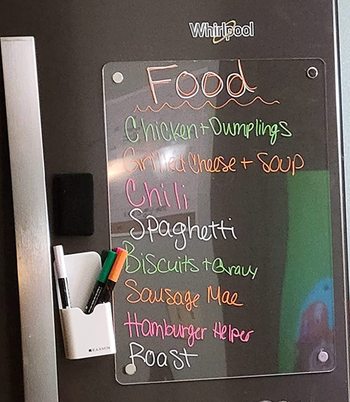 Whirlpool
Food
Chicken + Dumplings
Grilled Cheese + Soup
Chili
Spaghetti
Biscuits + Gravy
Sausage Mac
Hamburger Helper
Roast